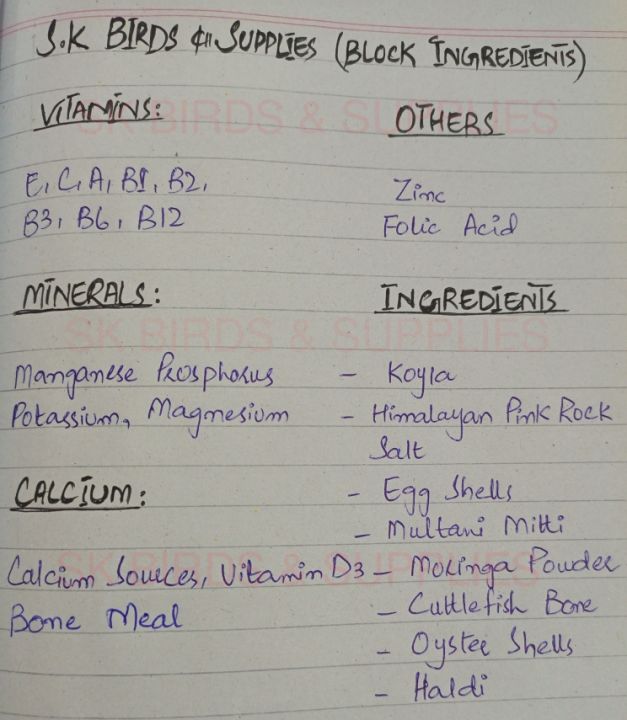 S.K BIRDS & SUPPLIES (BLOCK INGREDIENTS)
VITAMINS:
E, C, A, B1, B2,
B3, B6, B12
OTHERS
Zinc
Folic Acid
MINERALS:
Manganese Phosphorus
Potassium, Magnesium
CALCIUM:
Calcium Sources, Vitamin D3
Bone Meal
INGREDIENTS
- Koyla
- Himalayan Pink Rock
Salt
- Egg Shells
- Multani Mitti
- Moringa Powder
- Cuttlefish Bone
- Oyster Shells
- Haldi
SK BIRDS & SUPPLIES
SK BIRDS & SUPPLIES
SK BIRDS & SUPPLIES